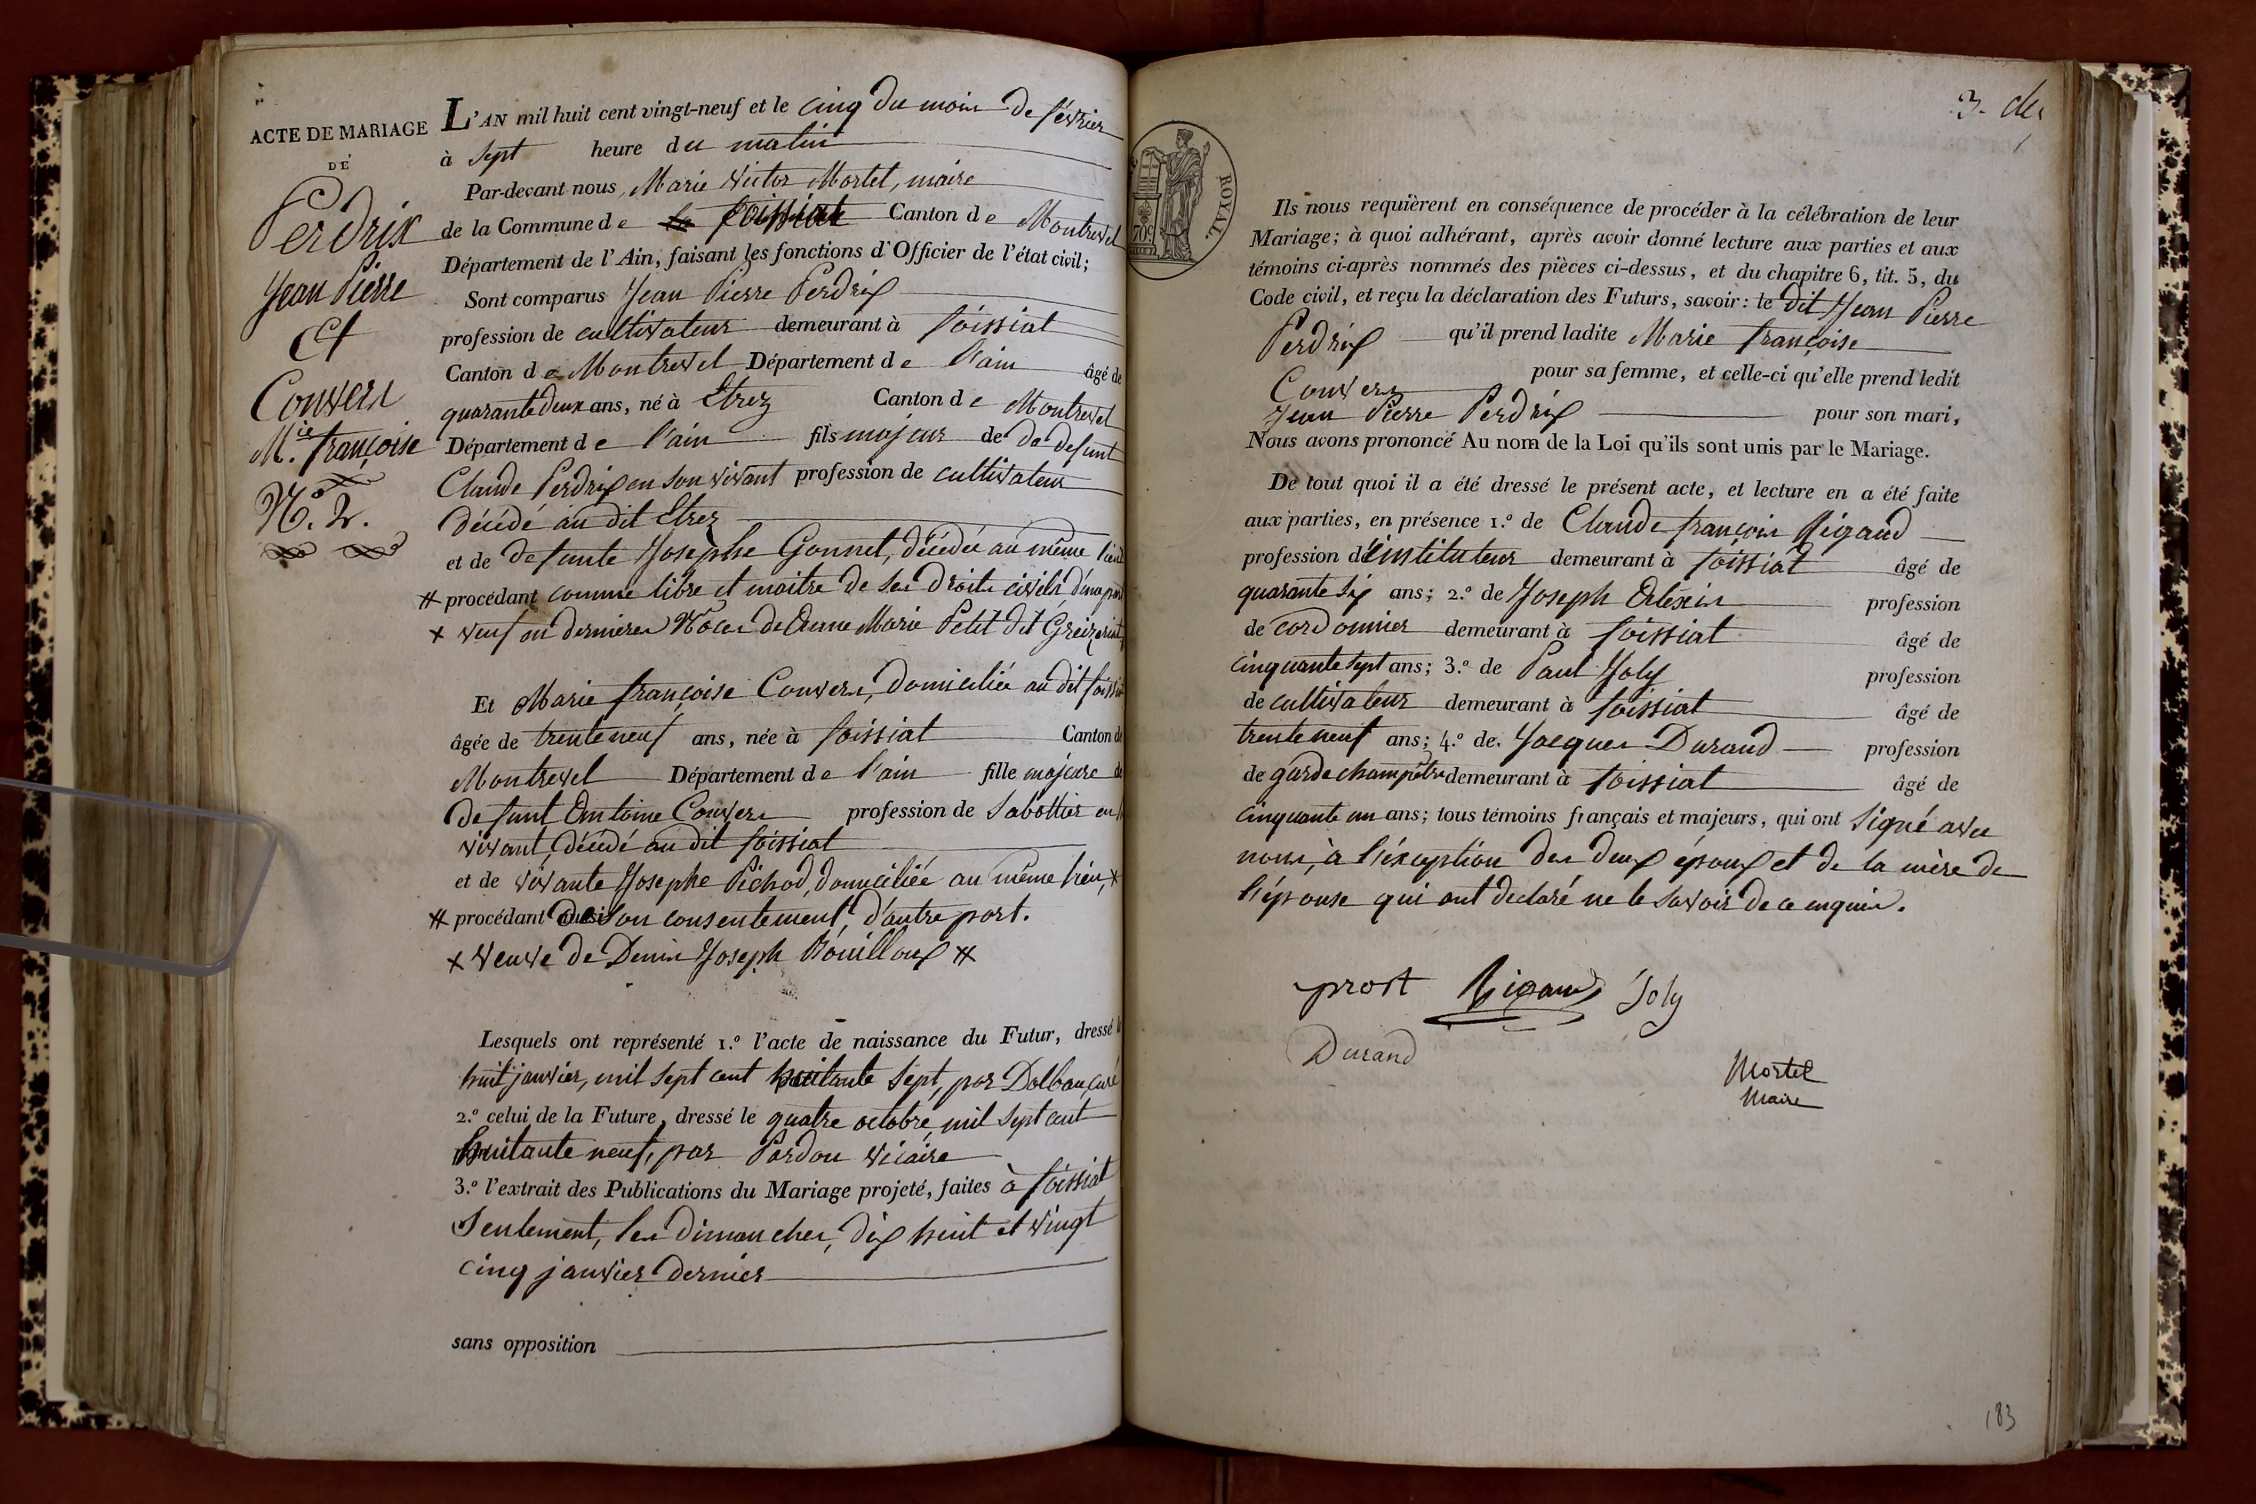 ACTE DE MARIAGE
DE
Perdrix
Jean Pierre
Et
Convers
M.ie françoise
N.o 2.
L'AN mil huit cent vingt-neuf et le cinq du mois de février
à sept heure du matin
Par-devant nous, Marie Victor Mortel, maire
de la Commune de foissiat Canton de Montrevel
Département de l'Ain, faisant les fonctions d'Officier de l'état civil;
Sont comparus Jean Pierre Perdrix
profession de cultivateur demeurant à foissiat
Canton de Montrevel Département de l'ain âgé de
quarante deux ans, né à Etrez Canton de Montrevel
Département de l'ain fils majeur de de defunt
Claude Perdrix en son vivant profession de cultivateur
décédé au dit Etrez
et de defunte Josephe Gonnet, décédée au même lieu
# procédant comme libre et maitre de ses droits civils d'une part
x veuf en dernieres Nôces de Anne Marie Petit dit Greizeriat
Et Marie françoise Convers, domiciliée au dit foissiat
âgée de trente neuf ans, née à foissiat Canton de
Montrevel Département de l'ain fille majeure de
defunt Antoine Convers profession de Sabottier en
vivant, décédé au dit foissiat
et de vivante Josephe Pichod, domiciliée au même lieu, x
# procédant de son consentement, d'autre part.
x veuve de Denis Joseph Rouilloux #
Lesquels ont représenté 1.o l'acte de naissance du Futur, dressé le
huit janvier, mil sept cent huitante sept, par Dalban, curé
2.o celui de la Future, dressé le quatre octobre, mil sept cent
huitante neuf, par Pardon vicaire
3.o l'extrait des Publications du Mariage projeté, faites à foissiat
Seulement, les dimanches, dix huit et vingt
cinq janvier dernier
sans opposition
3. de
ROYAL.
70c
Ils nous requièrent en conséquence de procéder à la célébration de leur
Mariage; à quoi adhérant, après avoir donné lecture aux parties et aux
témoins ci-après nommés des pièces ci-dessus, et du chapitre 6, tit. 5, du
Code civil, et reçu la déclaration des Futurs, savoir: le dit Jean Pierre
Perdrix qu'il prend ladite Marie françoise
Convers pour sa femme, et celle-ci qu'elle prend ledit
Jean Pierre Perdrix pour son mari,
Nous avons prononcé Au nom de la Loi qu'ils sont unis par le Mariage.
De tout quoi il a été dressé le présent acte, et lecture en a été faite
aux parties, en présence 1.o de Claude françois Rigaud
profession d'instituteur demeurant à foissiat âgé de
quarante six ans; 2.o de Joseph profession
de cordonnier demeurant à foissiat âgé de
cinquante sept ans; 3.o de Paul Joly profession
de cultivateur demeurant à foissiat âgé de
trente neuf ans; 4.o de. Jacques Durand profession
de garde champêtre demeurant à foissiat âgé de
cinquante un ans; tous témoins français et majeurs, qui ont signé avec
nous, à l'exception des deux époux et de la mère de
l'épouse qui ont declaré ne le savoir de ce enquis.
prost Rigaud Joly
Durand
Mortel
Maire
183